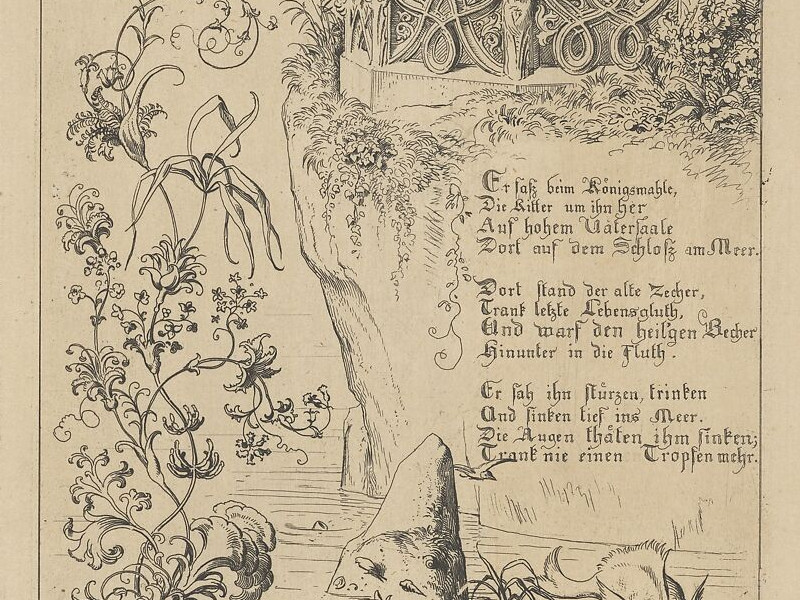 Er saß beim Königsmahle,
Die Ritter um ihn her
Auf hohem Vätersaale
Dort auf dem Schloß am Meer.
Dort stand der alte Zecher,
Trank letzte Lebensgluth,
Und warf den heil'gen Becher
Hinunter in die Fluth.
Er sah ihn stürzen, trinken
Und sinken tief ins Meer.
Die Augen thäten ihm sinken;
Trank nie einen Tropfen mehr.